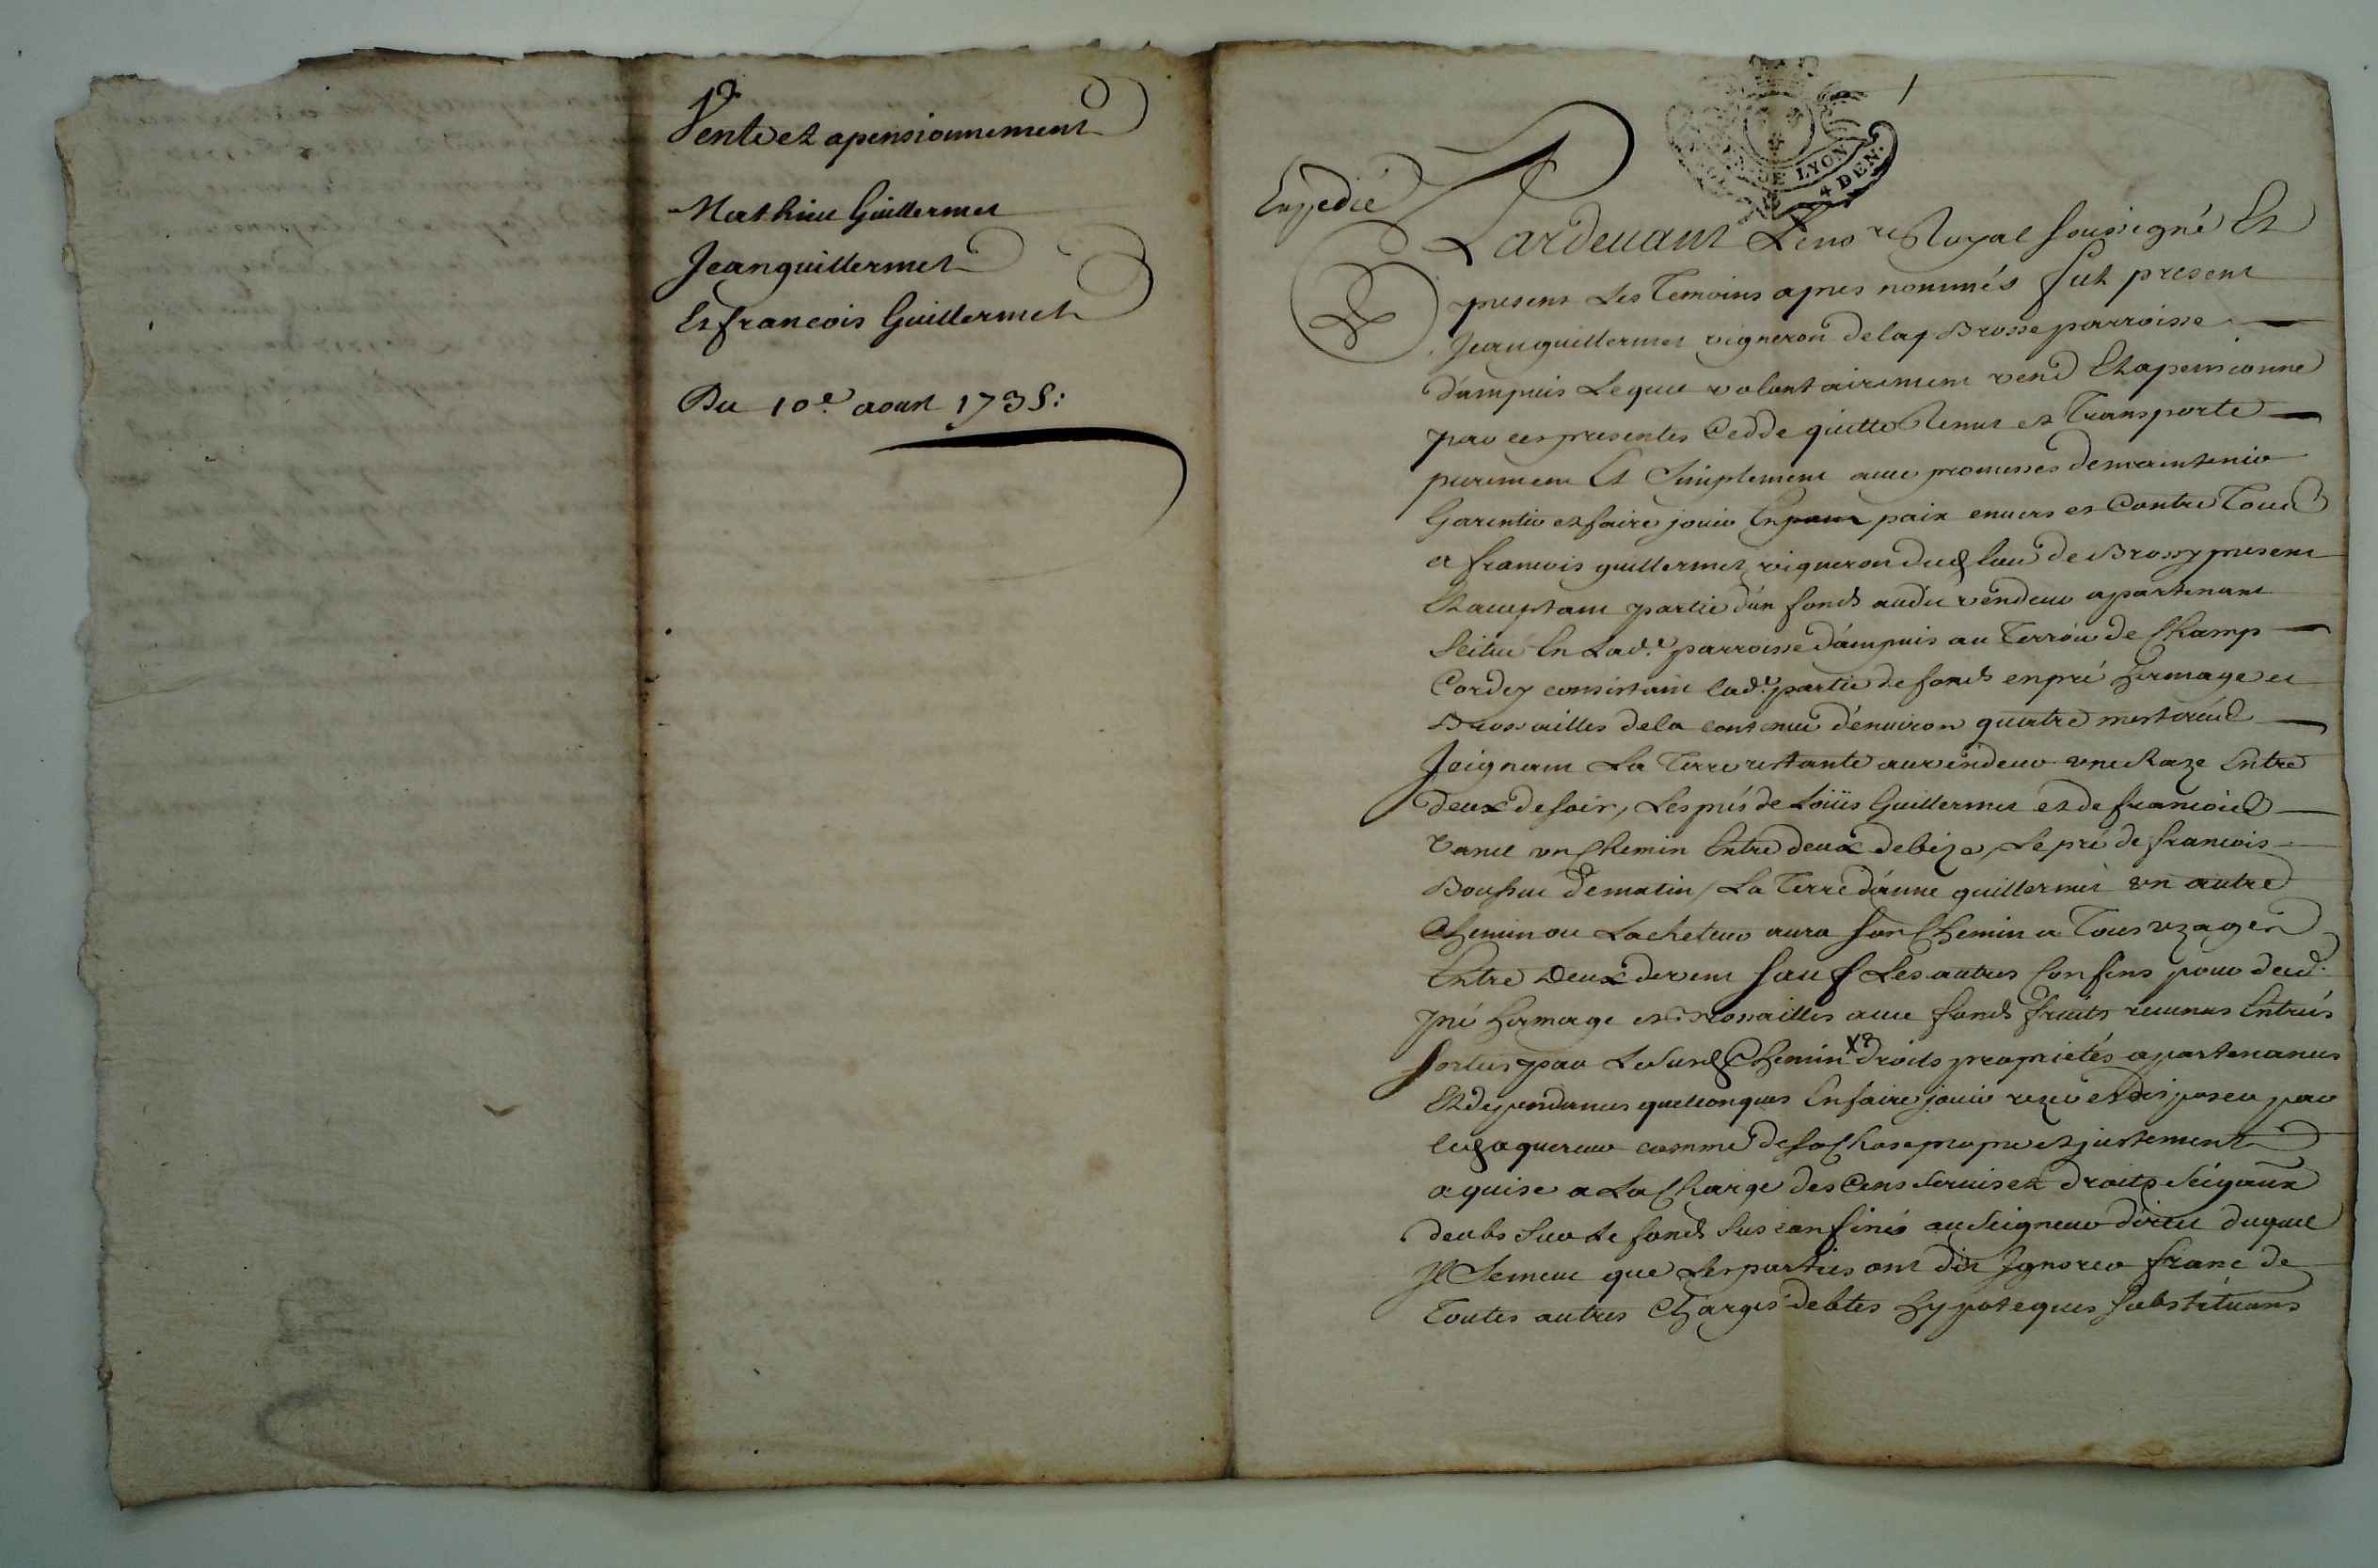 Vente et apensionnement
Mathieu Guillermet
Jean guillermet
Et francois Guillermet
Du 10e. aoust 1735:
DE LYON
4 DEN.
1
Expedié
Pardevant Le no.re Royal soussigné Et
present Les Temoins apres nommés fut present
Jean guillermet vigneron de la Brosse parroisse
d'ampuis Lequel volontairement vend Et apensionne
par ces presentes Cedde quitte Remet et Transporte
purement Et Simplement avec promesses de maintenir
Garentir et faire jouir En paix envers et Contre Tous
a francois guillermet vigneron dud lieu de Brossy present
Et acceptant partie d'un fonds audit vendeur apartenant
Scitué En Lad.e parroisse d'ampuis au Terroir de Champ
Cordey consistant lad.e partie de fonds en pré hermage et
Brossailles de la contenue d'environ quatre
Joignant La Terre restante au vendeur une Raze Entre
deux de soir, Les prés de Loüis Guillermet et de francois
un Chemin Entre deux de bize, Le pré de francois
de matin, La Terre d'anne guillermet un autre
Chemin ou Lacheteur aura son Chemin a Tous uzages
Entre Deux de vent sauf Les autres Confins pour dud.
pré hermage et Brossailles avec fonds fruits revenus Entrées
sorties par Le susd Chemin X droits proprietés apartenances
Et dependances quelconques En faire jouir uzer et disposer par
led aquereur comme de sa Chose propre et justement
aquise a La Charge des Cens Servis et droits Seigaux
deubs sur Le fonds sus confiné au Seigneur direct duquel
Il Se meut que Les parties ont dit Ignorer franc de
Toutes autres Charges debtes hypoteques substituons